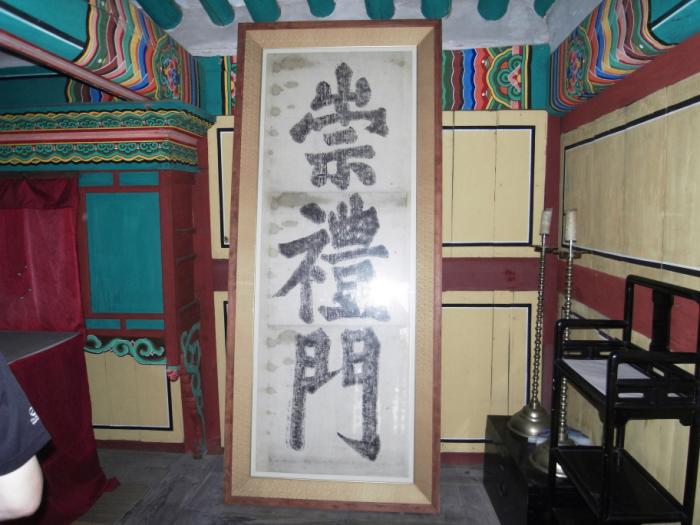 崇
禮
門